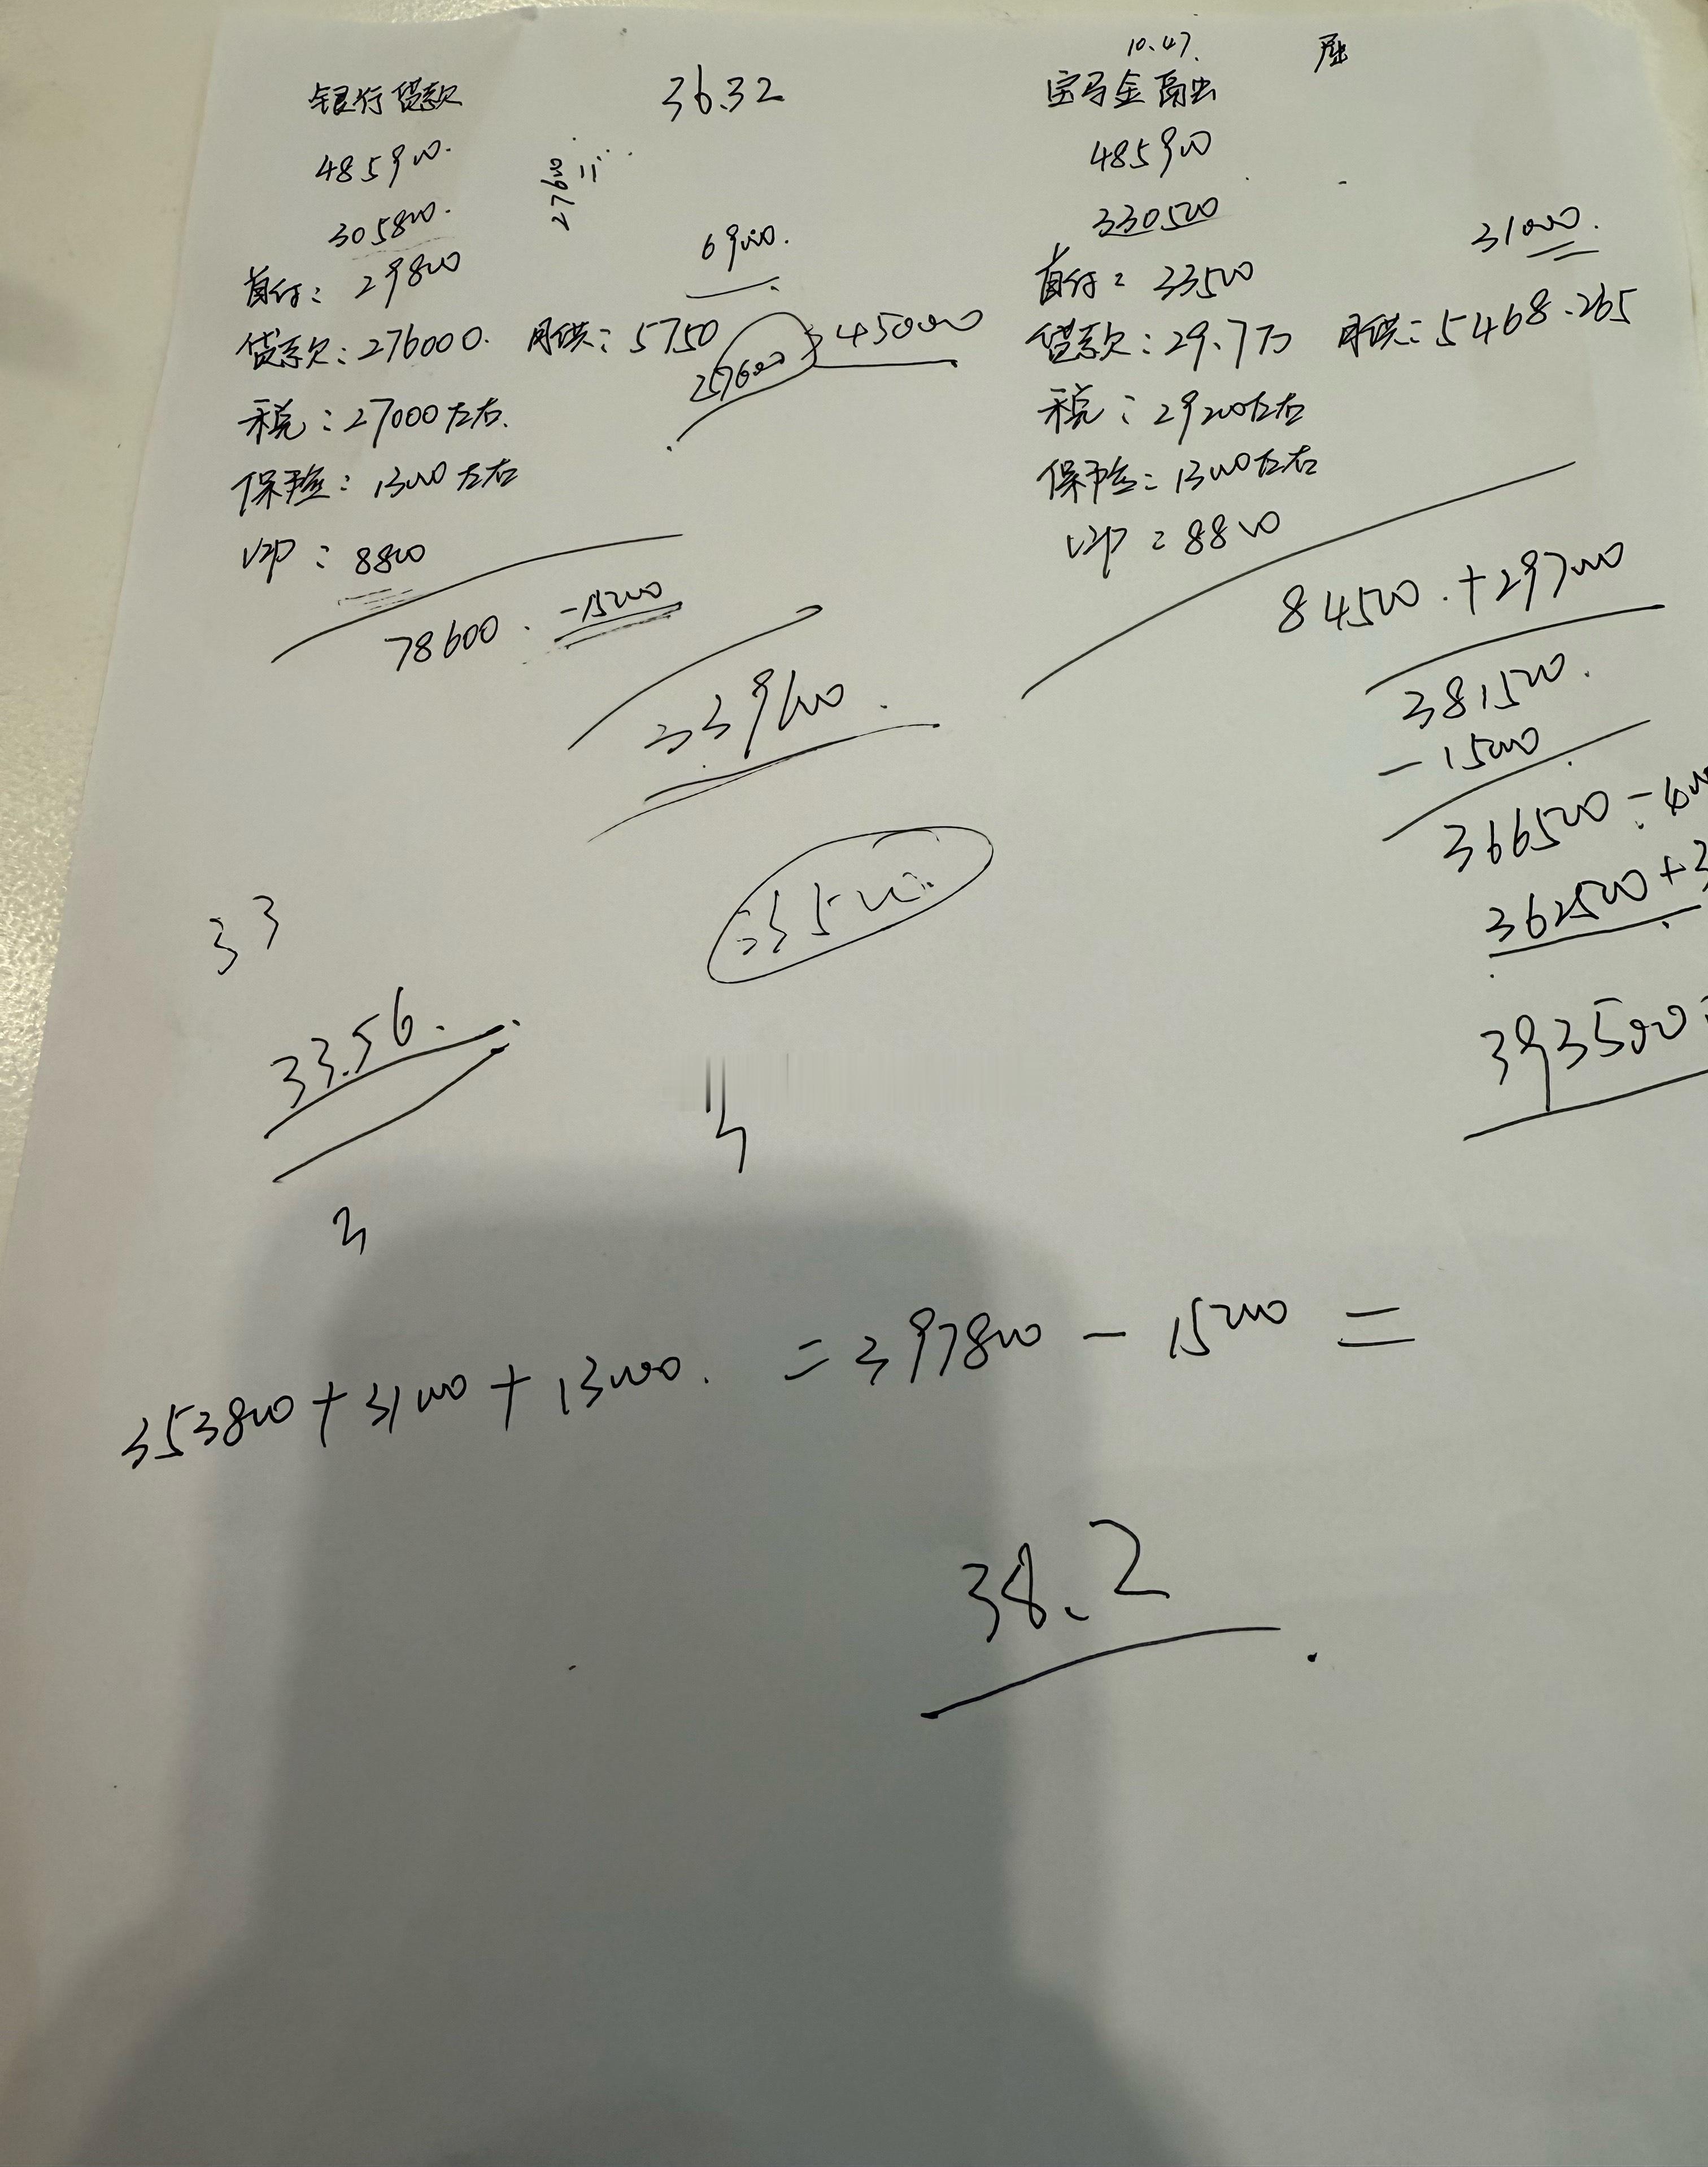 银行贷款
485900.
305800.
首付: 29800
贷款: 276000. 月供: 5750
税: 27000左右.
保险: 13000左右
VIP: 8800
78600. -15000
36.32
27600
69000.
276000
345000
339600.
335000
33
33.56.
3
10.47.
宝马金融
485900
330500
首付: 33500
贷款: 29.7万 月供: 5468.265
税: 29200左右
保险: 13000左右
VIP: 8800
31000.
84500.+297000
381500.
-15000
366500-
362500+3
393500
353800+31000+13000.=397800-15000=
38.2